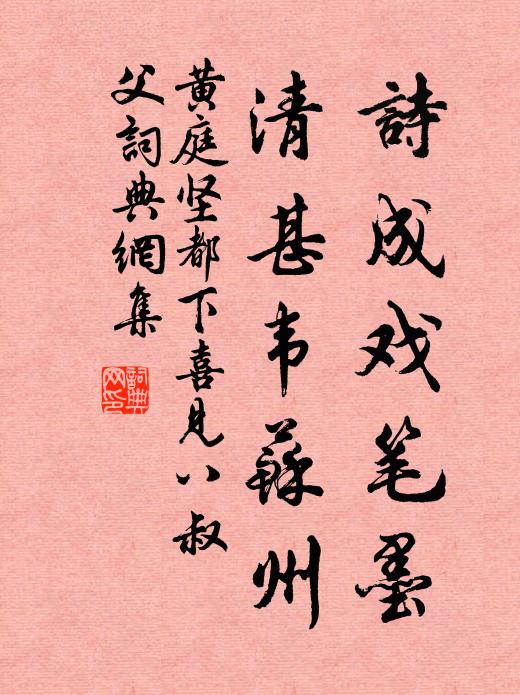 詩成戏笔墨
清甚韦蘇州
黄庭坚都下喜見八叔
父詞典網集
詞典网印